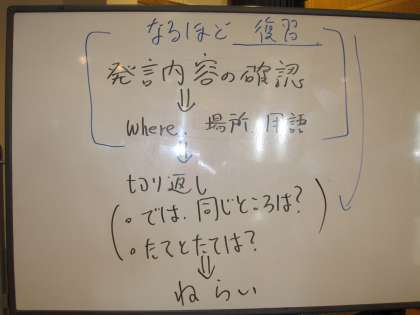 なるほど 復習
発言内容の確認
⇓
where. 場所、用語
⇓
切り返し
・では、同じところは?
・たてとたては?
⇓
ねらい